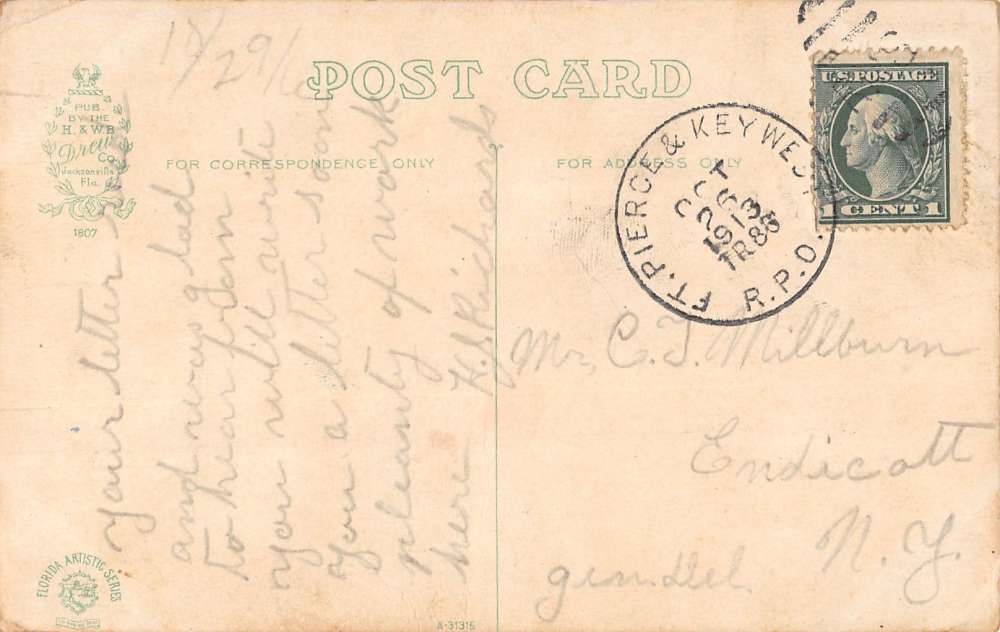 17/29/
POST CARD
PUB
BY THE
H. & W.B.
Drew
CO.
Jacksonville
Fla.
1807
FOR CORRESPONDENCE ONLY
FOR ADDRESS ONLY
U.S. POSTAGE
1 CENT 1
FT. PIERCE & KEY WEST R.P.O.
OCT
26
1913
TR 86
your letter
and very glad
to hear from
you will write
you a letter soon
pleanty of work
here H.S. Richards
Mr, C. T. Millburn
Endicott
N. Y.
gen. Del.
FLORIDA ARTISTIC SERIES
A-31315